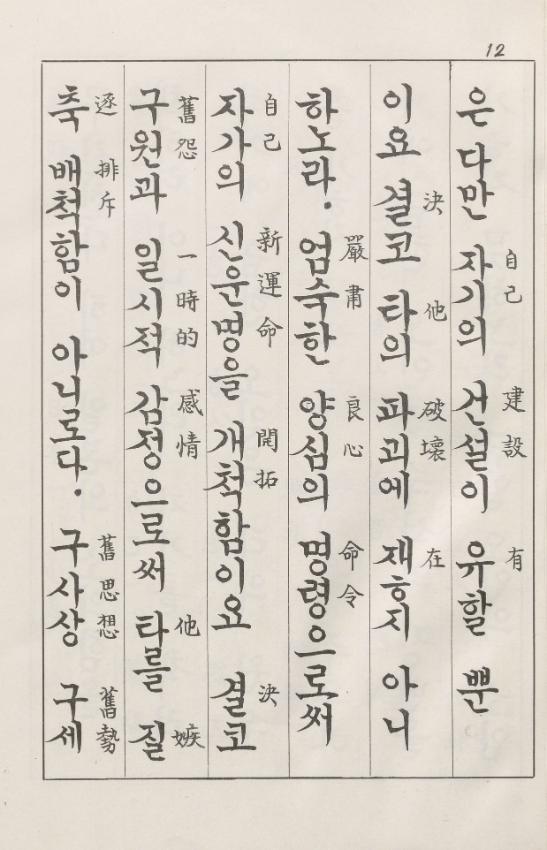 12
은 다만 자기의 건설이 유할 뿐
自己 建設 有
이요 결코 타의 파괴에 재ㅎ지 아니
決 他 破壞 在
하노라. 엄숙한 양심의 명령으로써
嚴肅 良心 命令
자가의 신운명을 개척함이요 결코
自己 新運命 開拓 決
구원과 일시적 감정으로써 타를 질
舊怨 一時的 感情 他 嫉
축 배척함이 아니로다. 구사상 구세
逐 排斥 舊思想 舊勢